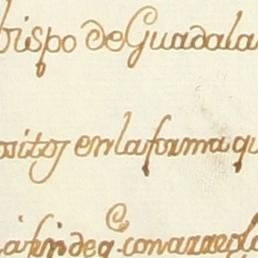 bispo de Guadala
ositos en la forma qu
a fin de q. con arreglo